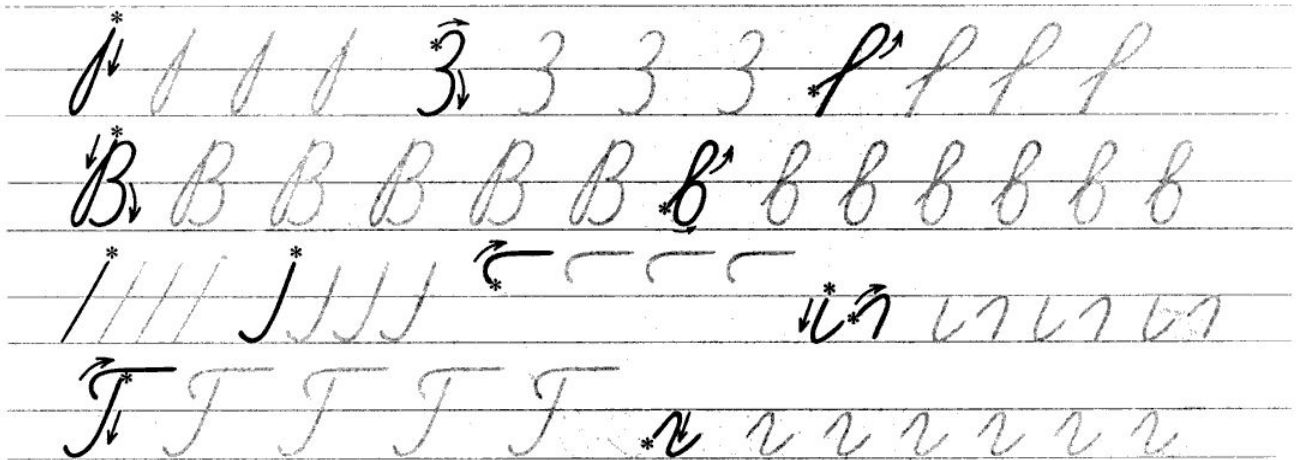 В В В В В В в в в в в в в
Г Г Г Г Г г г г г г г г